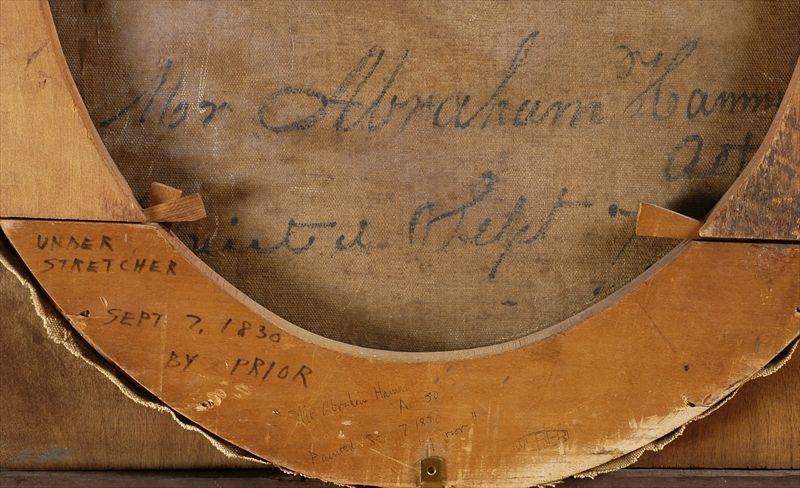 Mr Abraham Hamm
Painted Sept 7
UNDER
STRETCHER
SEPT 7, 1830
BY PRIOR
"Mr Abraham Hamm
A 50
Painted Sept 7 1830
rior"